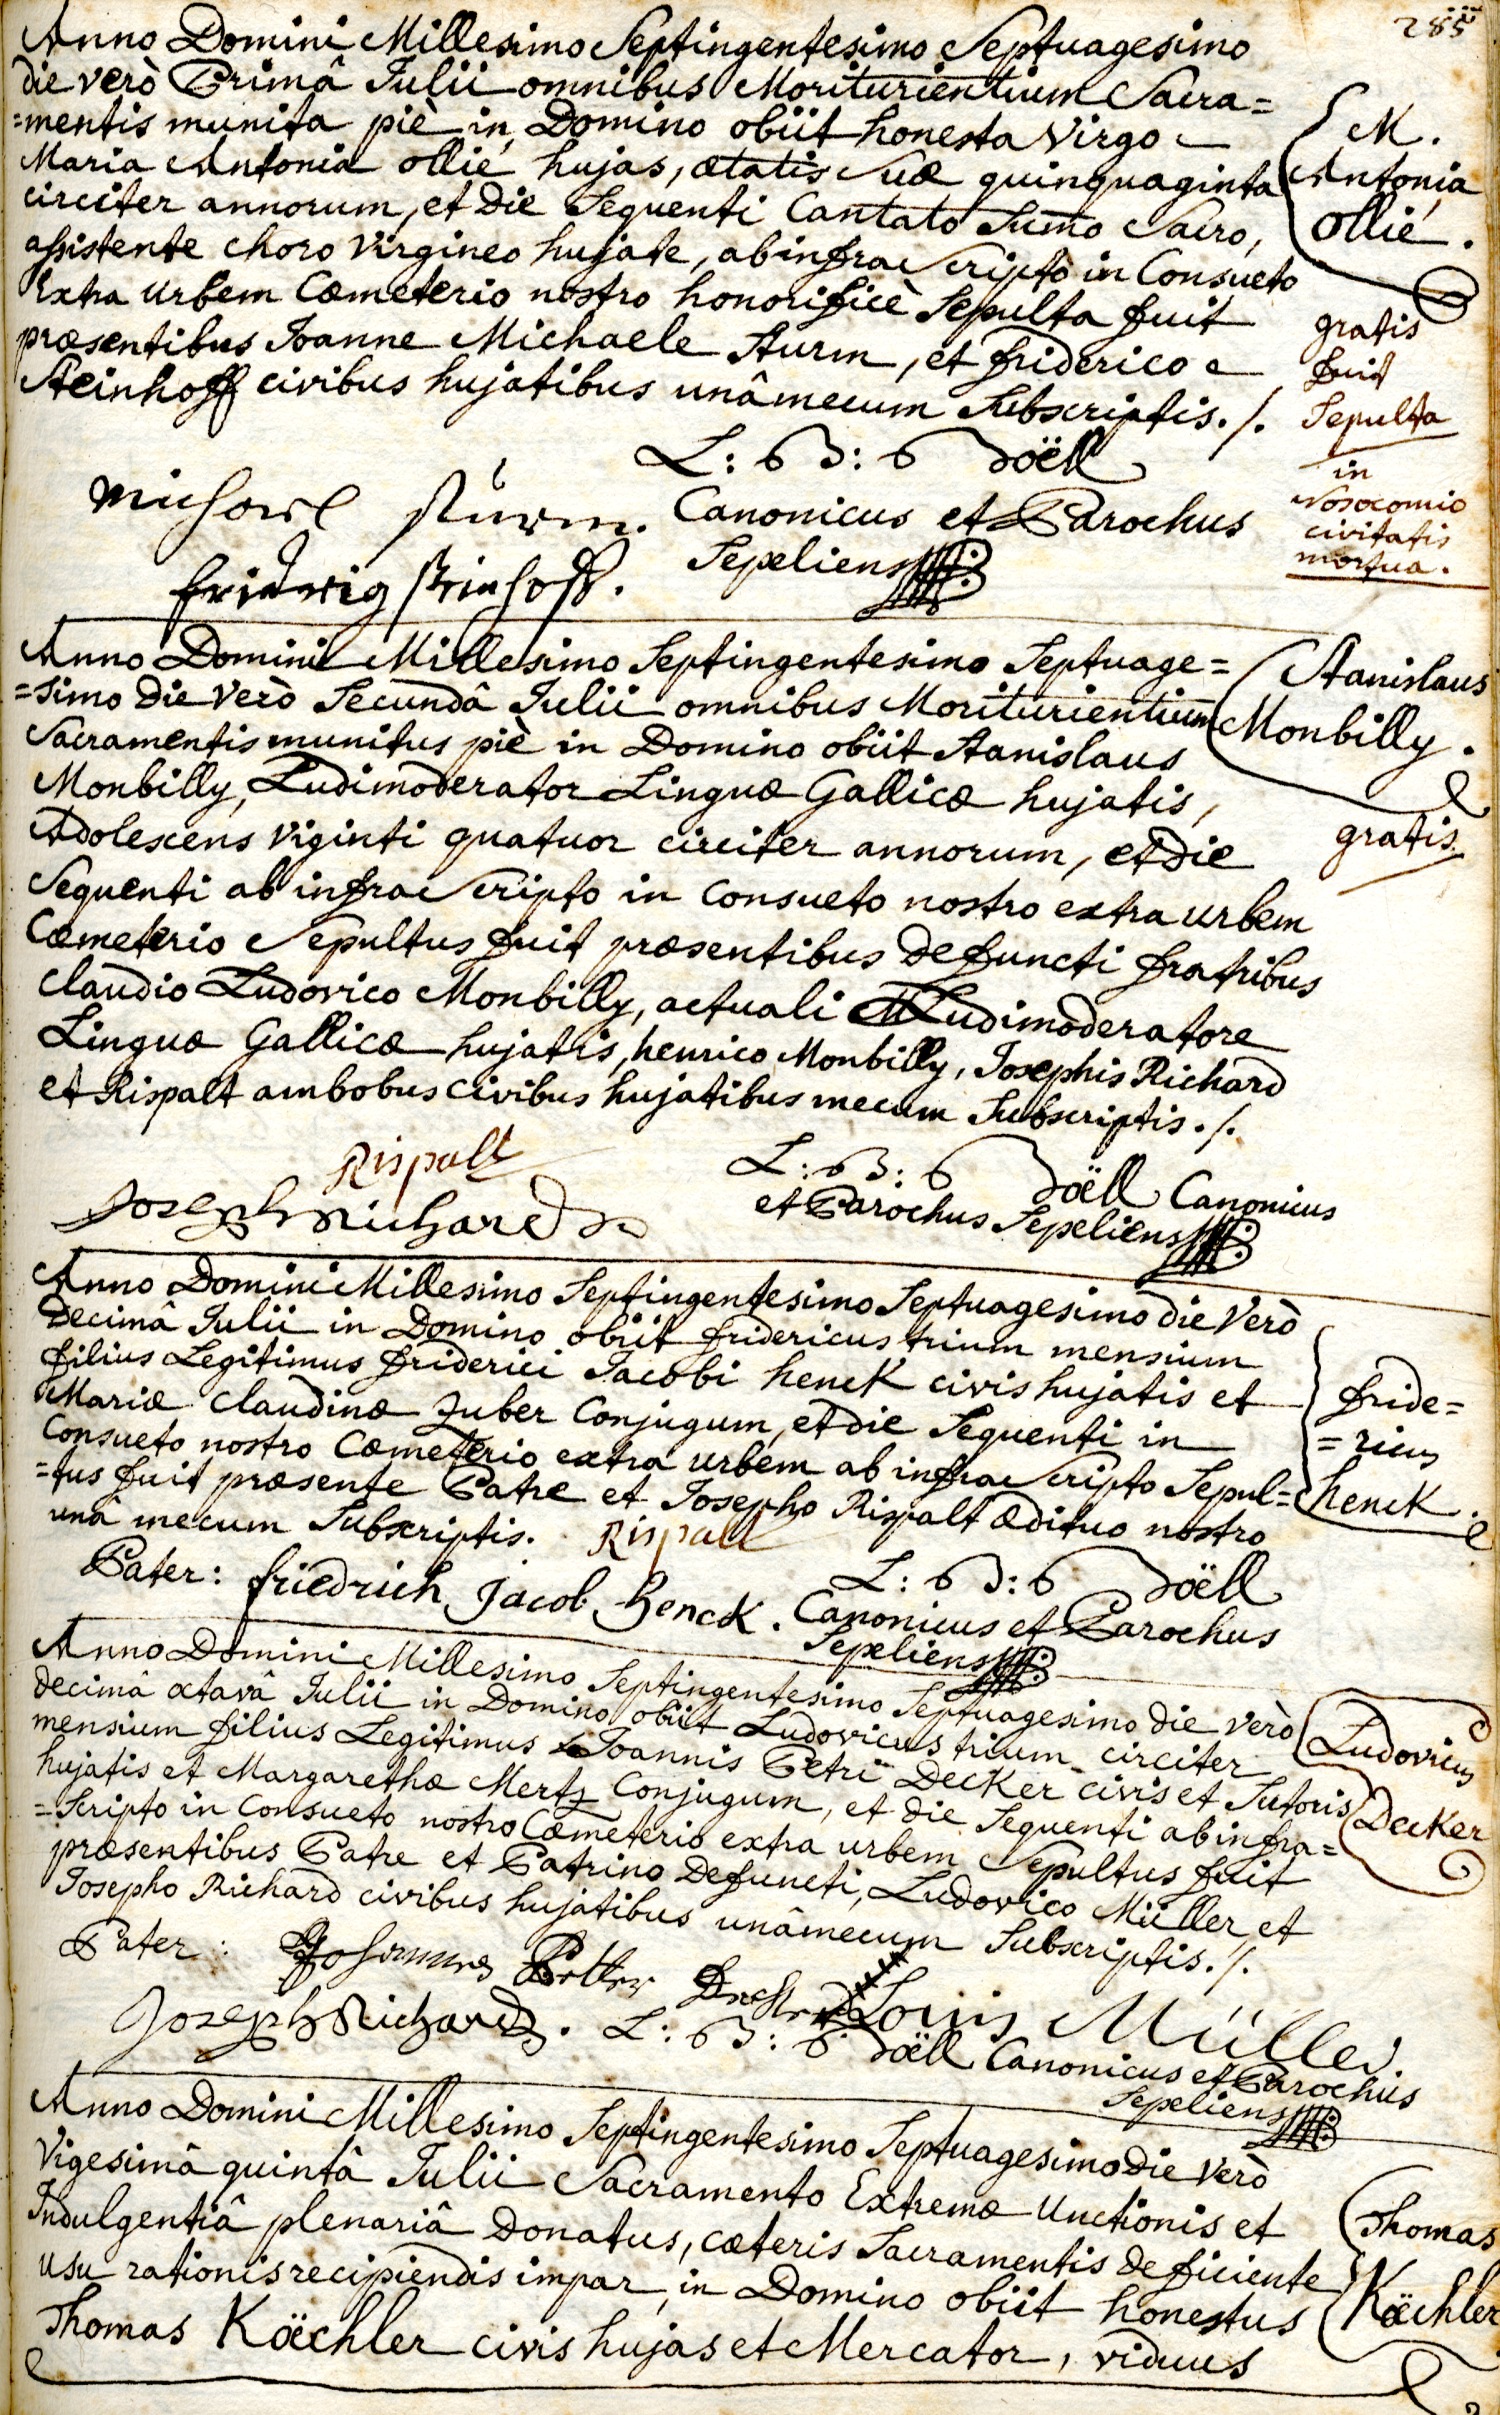 285
Anno Domini Millesimo Septingentesimo Septuagesimo
die verò Primâ Julii omnibus Moriturientium Sacra=
=mentis munita piè in Domino obiit honesta Virgo
Maria Antonia ollié hujas, ætatis suæ quinquaginta
circiter annorum, et die Sequenti Cantato summo Sacro,
assistente choro Virgineo hujate, ab infra Scripto in Consueto
Extra Urbem Cœmeterio nostro honorificè Sepulta fuit
præsentibus Joanne Michaele Sturm, et friderico
Steinhoff civibus hujatibus unâ mecum Subscriptis ./.
M.
Antonia
ollié.
gratis
fuit
Sepulta
in
Nosocomio
civitatis
mortua.
L: B: Doëll
Canonicus et Parochus
Sepeliens
Michael Sturm.
fridrig steinhoff.
Anno Domini Millesimo Septingentesimo Septuage=
=simo die Verò Secundâ Julii omnibus Moriturientium
Sacramentis munitus piè in Domino obiit Stanislaus
Monbilly, Ludimoderator Linguæ Gallicæ hujatis,
Adolescens viginti quatuor circiter annorum, et die
Sequenti ab infra Scripto in consueto nostro extra urbem
Cœmeterio Sepultus fuit præsentibus defuncti fratribus
Claudio Ludovico Monbilly, actuali Ludimoderatore
Linguæ Gallicæ hujatis, henrico Monbilly, Josephis Richard
et Rispalt ambobus civibus hujatibus mecum Subscriptis ./.
Stanislaus
Monbilly.
gratis.
Rispalt
Joseph Richard
L: B: Doëll Canonicus
et Parochus Sepeliens
Anno Domini Millesimo Septingentesimo Septuagesimo die Verò
Decimâ Julii in Domino obiit fridericus trium mensium
filius Legitimus friderici Jacobi henck civis hujatis et
Mariæ Claudinæ Zuber Conjugum, et die Sequenti in
Consueto nostro Cœmeterio extra urbem ab infra Scripto Sepul=
=tus fuit præsente Patre et Josepho Rispalt ædituo nostro
unâ mecum Subscriptis.
fride=
=ricus
henck.
Rispalt
Pater: friedrich Jacob Henck.
L: B: Doëll
Canonicus et Parochus
Sepeliens
Anno Domini Millesimo Septingentesimo Septuagesimo die verò
decimâ octavâ Julii in Domino obiit Ludovicus trium circiter
mensium filius Legitimus Joannis Petri Decker civis et Sutoris
hujatis et Margarethæ Mertz Conjugum, et die Sequenti ab infra=
=Scripto in Consueto nostro Cœmeterio extra urbem Sepultus fuit
præsentibus Patre et Patrino Defuncti, Ludovico Müller et
Josepho Richard civibus hujatibus unâ mecum Subscriptis ./.
Ludovicus
Decker
Pater: Johannes Petter
Louis Müller.
Joseph Richard.
L: B: Doëll Canonicus et Parochus
Sepeliens
Anno Domini Millesimo Septingentesimo Septuagesimo die Verò
Vigesimâ quintâ Julii Sacramento Extremæ Unctionis et
Indulgentiâ plenariâ Donatus, cæteris Sacramentis deficiente
usu rationis recipiendis impar, in Domino obiit honestus
Thomas Köechler civis hujas et Mercator, viduus
Thomas
Köechler